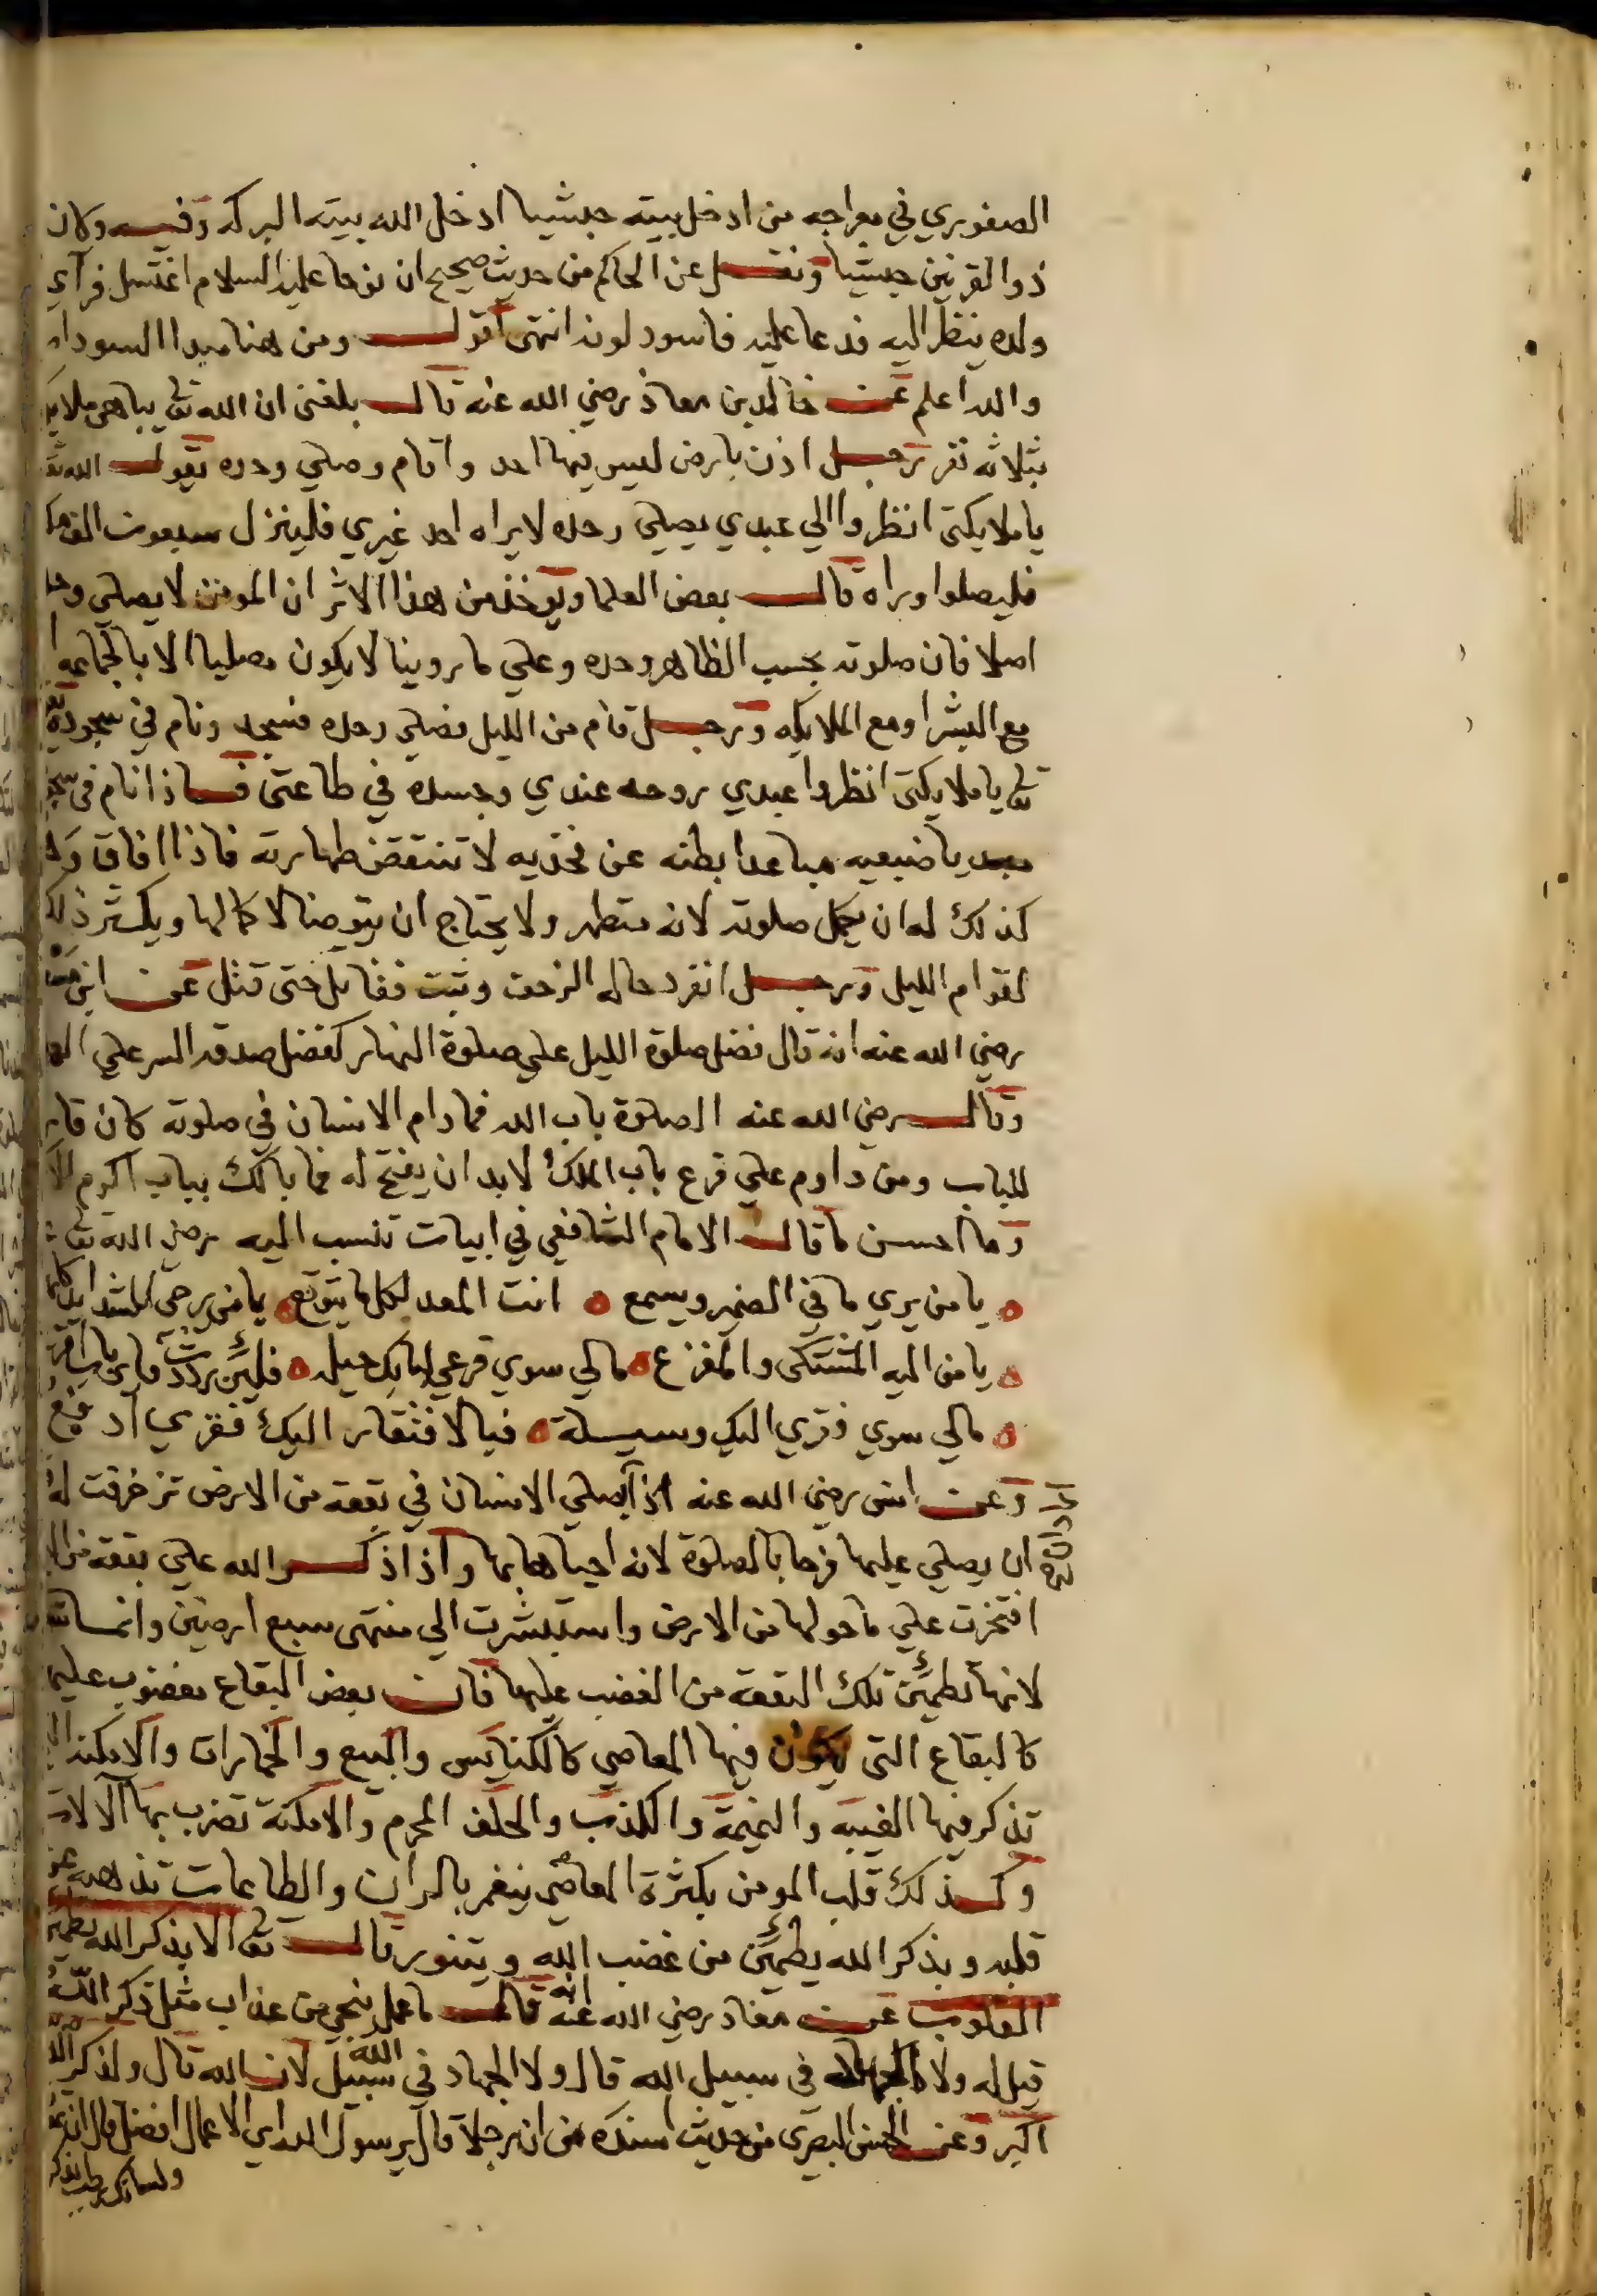 الصفوري في معراجه من ادخل بيته حبشيا ادخل الله بيته البركه وفيه وكان
ذو القرنين حبشيا ونقل عن الحاكم من حديث صحيح ان نوحا عليه السلام اغتسل فرآي
ولده ينظر اليه فدعا عليه فاسود لونه انتهى اقول ومن هنا مبدا السودان
والله اعلم عن خالد بن معاذ رضي الله عنه قال بلغني ان الله تعا يباهي ملايكـ
بثلاثه نفر رجل اذن بارض ليس فيها احد واقام وصلي وحده يقول الله تعـ
يا ملايكتى انظروا الي عبدي يصلي وحده لا يراه احد غيري فلينزل سبعون الف ملك
فليصلوا وراه قال بعض العلما ويوخذ من هذا الاثر ان المومن لا يصلي وحد
اصلا فان صلوته بحسب الظاهر وحده وعلي ما روينا لا يكون مصليا الا بالجماعه
مع البشر او مع الملايكه ورجل قام من الليل فصلي وحده فسجد ونام في سجوده
تعا يا ملايكتى انظروا عبدي روحه عندي وجسده في طاعتى فاذا نام في
ضبعيه مباعدا بطنه عن فخذيه لا تنتقض طهارته فاذا افاق وله
كذلك له ان يكمل صلوته لانه متطهر ولا يحتاج ان يتوضا لاكمالها ويكثر ذلك
لقوام الليل ورجل انفرد حاله الزحف وثبت فقاتل حتى قتل عن ابن
رضي الله عنه انه قال فضل صلوة الليل علي صلوة النهار كفضل صدقه السر علي
وقال رضي الله عنه الصلوة باب الله فما دام الانسان في صلوته كان قار
للباب ومن داوم علي قرع باب الملك لا بد ان يفتح له فما بالك بباب اكرم
وما احسن ما قال الامام الشافعي في ابيات تنسب اليه رضي الله تعا
يا من يري ما في الضمير ويسمع انت المعد لكل ما يتوقع يا من يرجى للشدايد كلها
يا من اليه المشتكى والمفزع مالي سوي قرعي لبابك حيله فلين رددت فاي باب اقرع
مالي سوي فقري اليك وسيلة فبالافتقار اليك فقري ادفع
وعن انس رضي الله عنه اذا يصلي الانسان في بقعه من الارض تزخرفت له
ان يصلي عليها فرحا بالصلوة لانه احياها بها واذا ذكر الله علي بقعه من الا
افتخرت علي ما حولها من الارض واستبشرت الي منتهى سبع ارضين وانما
لانها تطمئن تلك البقعه من الغضب عليها فان بعض البقاع مغضوب عليها
كالبقاع التى يكون فيها المعاصي كالكنايس والبيع والخمارات والامكنه
تذكر فيها الغيبه والنميمة والكذب والحلف المحرم والامكنة تضرب بها الالات
وكذلك قلب المومن بكثرة المعاصي ينغمر بالران والطاعات تذهبه عن
قلبه وبذكر الله يطمئن من غضب الله ويتنور قال تعا الا بذكر الله تطمئن
القلوب عن معاذ رضي الله عنه انه قال ما عمل ينجي من عذاب مثل ذكر الله
قيل له ولا الجهاد في سبيل الله قال ولا الجهاد في سبيل الله لان الله قال ولذكر الله
اكبر وعن الحسن البصرى من حديث اسنده من ان رجلا قال يرسول الله اي الاعمال افضل قال ان تموت
ولسانك رطب بذكر